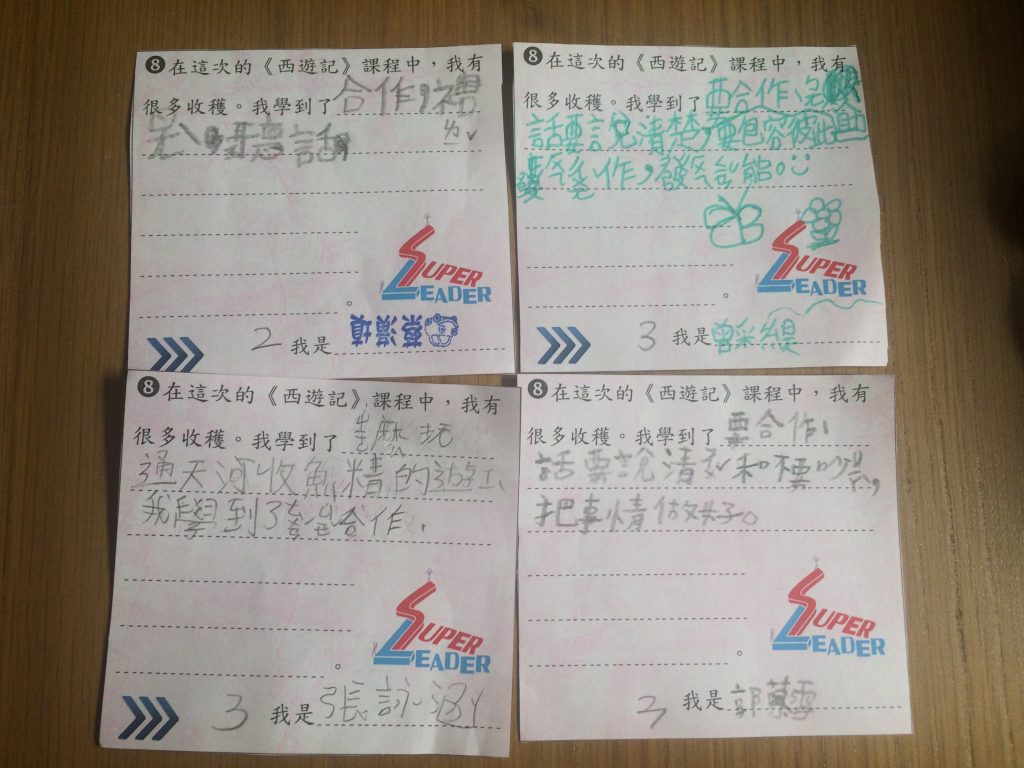 ❽在這次的《西遊記》課程中，我有
很多收穫。我學到了合作，禮
ㄌ
聽話
。
SUPER
LEADER
2 我是蔡濙填
❽在這次的《西遊記》課程中，我有
很多收穫。我學到了要合作、
話要說清楚，要包容彼此
作，發
。
SUPER
LEADER
3 我是曾采緹
❽在這次的《西遊記》課程中，我有
很多收穫。我學到了怎麼玩
通天河收魚精的遊
我學到了要合作、
。
SUPER
LEADER
3 我是張詠
❽在這次的《西遊記》課程中，我有
很多收穫。我學到了要合作，
話要說清 和不要吵
把事情做好。
。
SUPER
LEADER
我是郭